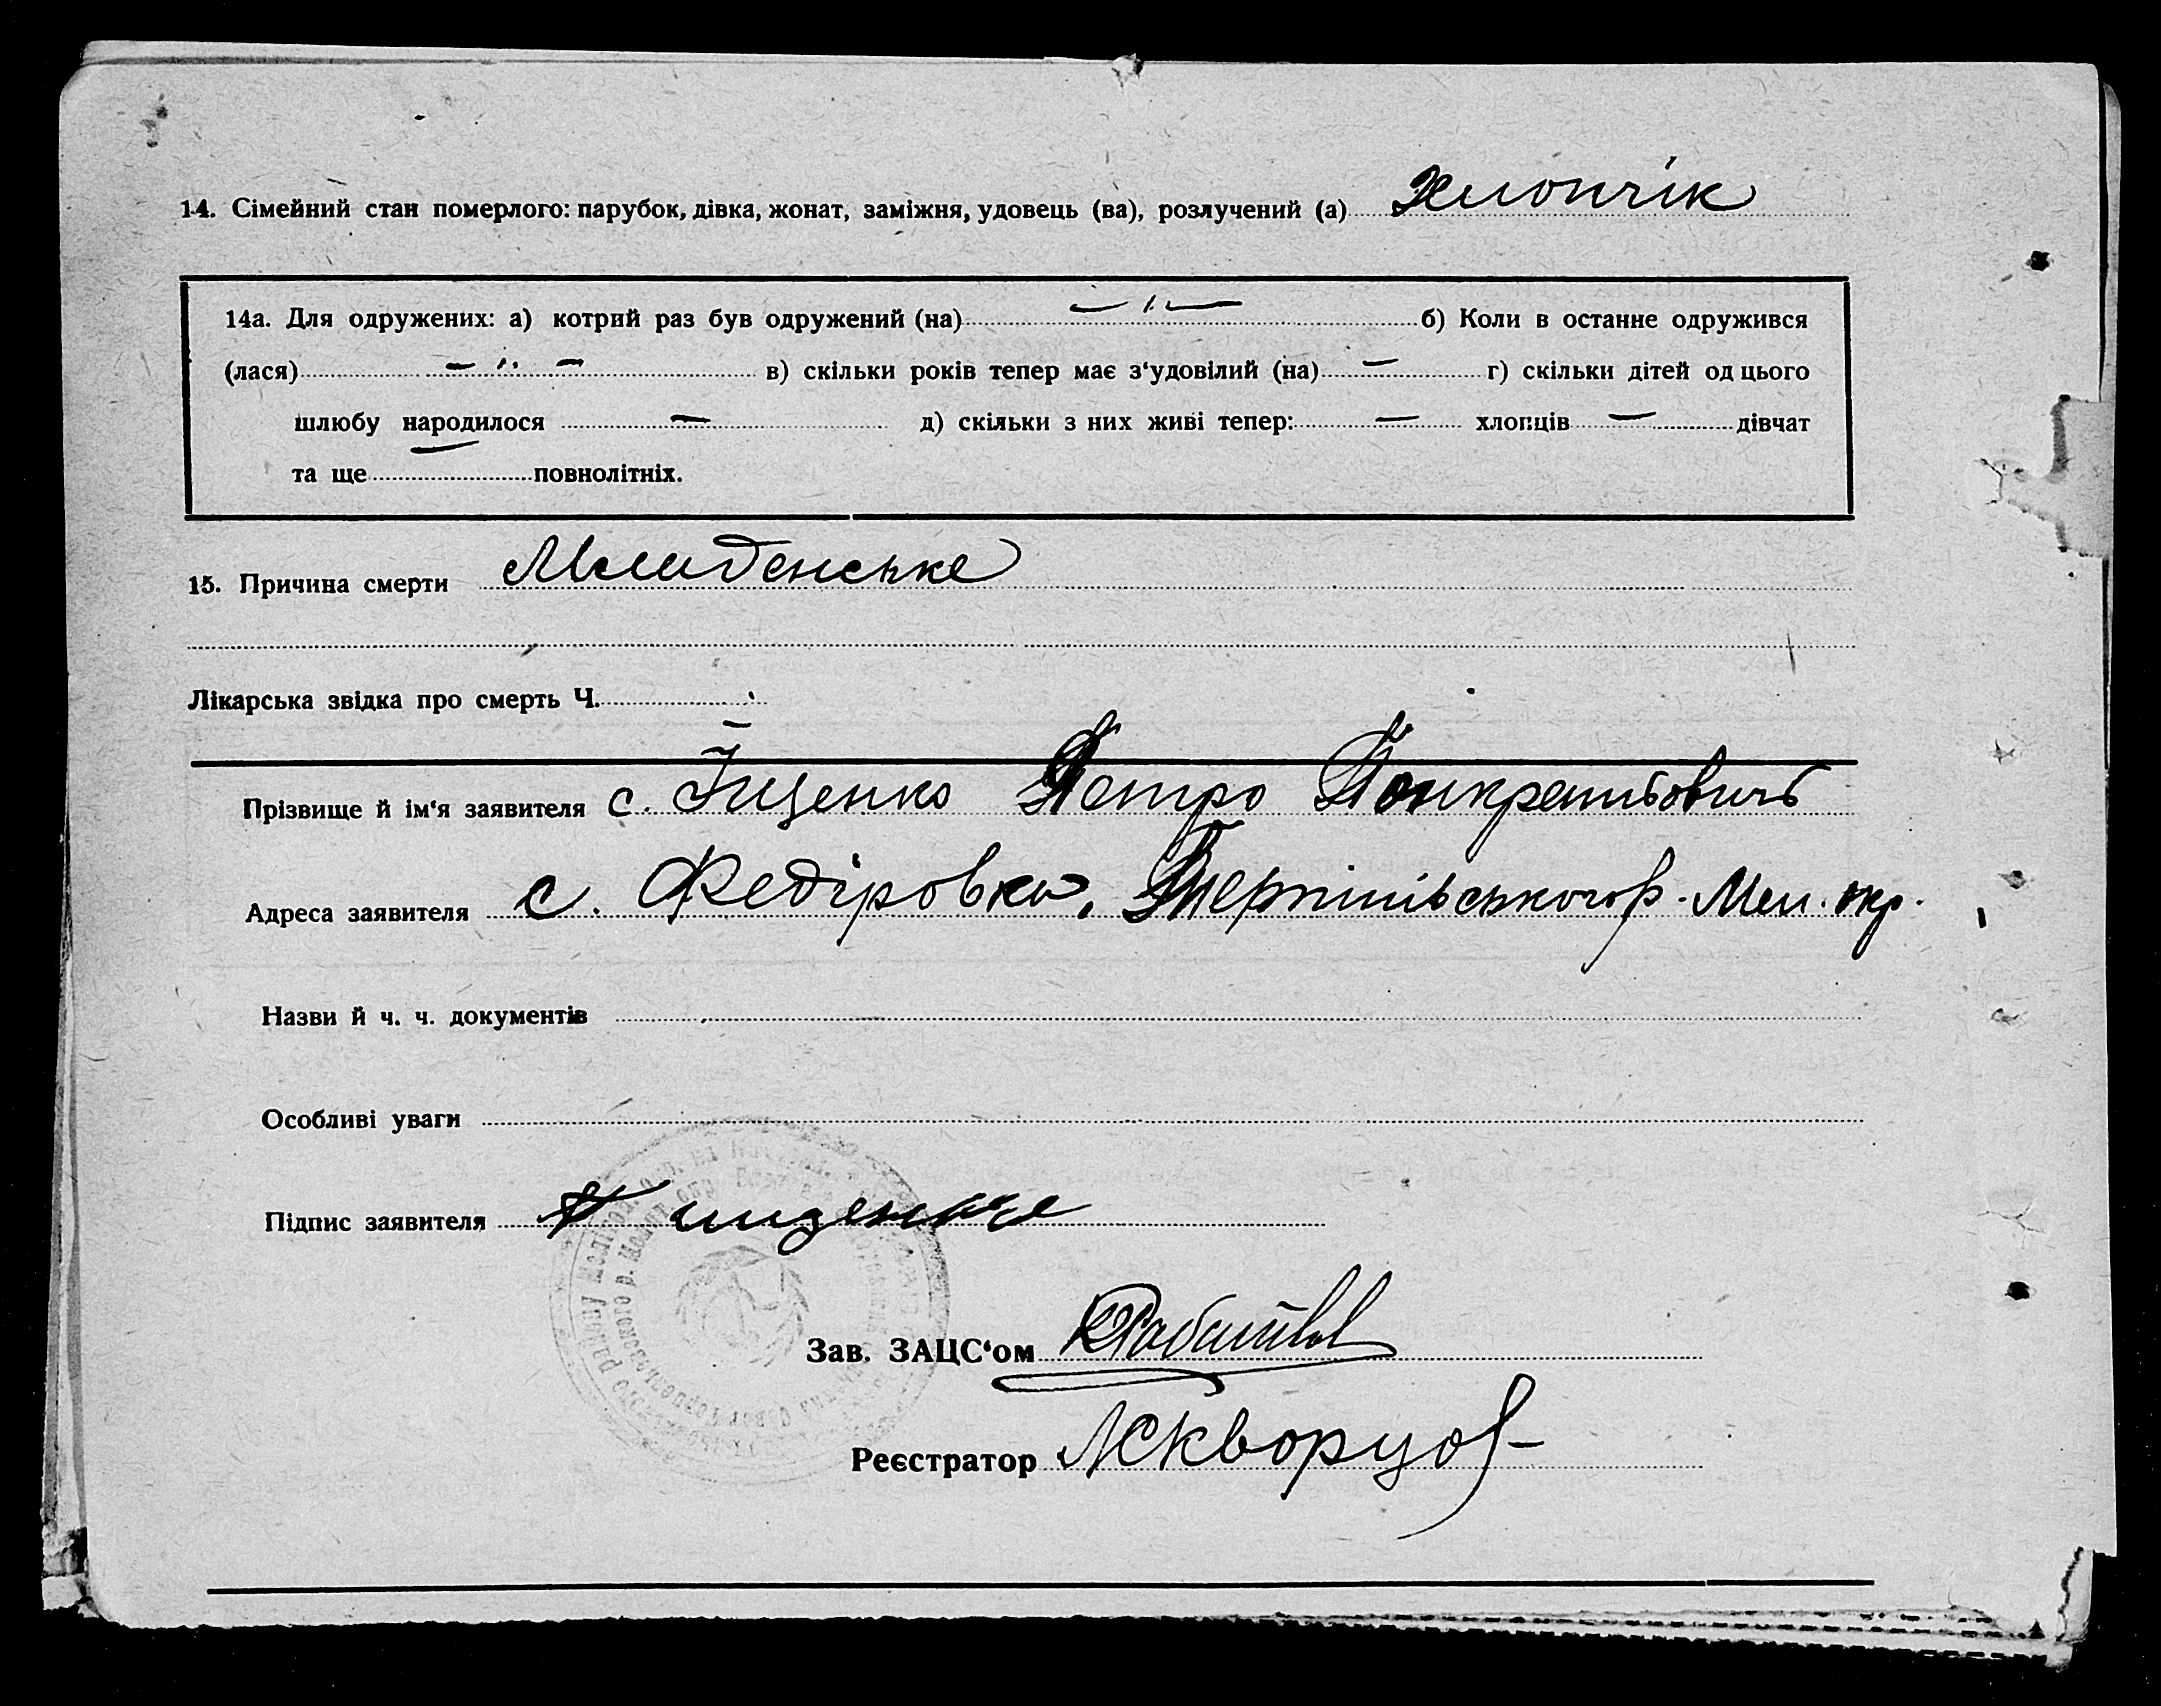 14. Сімейний стан померлого: парубок, дівка, жонат, заміжня, удовець (ва), розлучений (а) Хлопчік
14а. Для одружених: а) котрий раз був одружений (на) — " — б) Коли в останнє одружився
(лася) — " — в) скільки років тепер має з‘удовілий (на) — г) скільки дітей од цього
шлюбу народилося — д) скільки з них живі тепер: — хлопців — дівчат
та ще — повнолітніх.
15. Причина смерти Младенське
Лікарська звідка про смерть Ч.
Прізвище й ім‘я заявителя с. Іщенко Петро Понкратьовичь
Адреса заявителя с. Федіровка, р. Мел. окр.
Назви й ч. ч. документів
Особливі уваги
Підпис заявителя
Зав. ЗАЦС‘ом
Реєстратор Скворцов